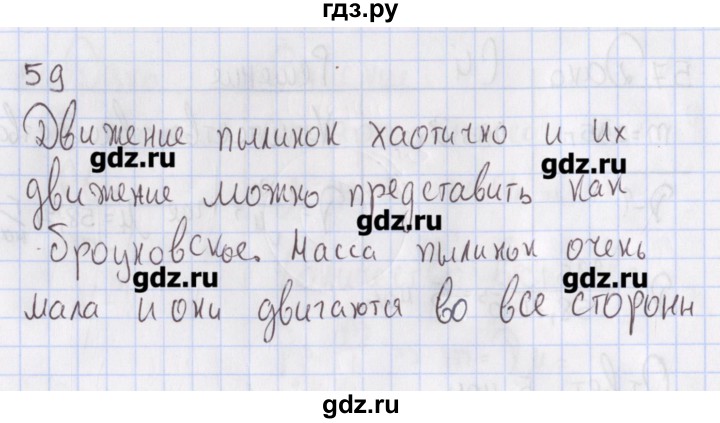 гдз.ру
59
Движение пылинок хаотично и их
gdz.ru gdz.ru
движение можно представить как
gdz.ru
броуновское. Масса пылинок очень
gdz.ru gdz.ru
мала и они двигаются во все стороны
gdz.ru